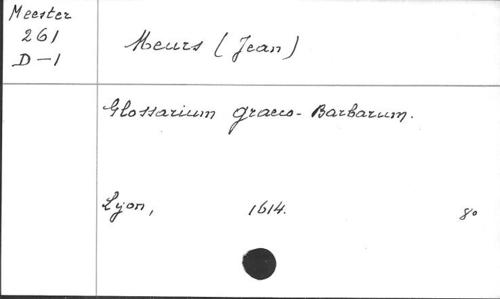 Meester
261
D-1
Meurs (Jean)
Glossarium graeco-Barbarum.
Lyon, 1614. 8°